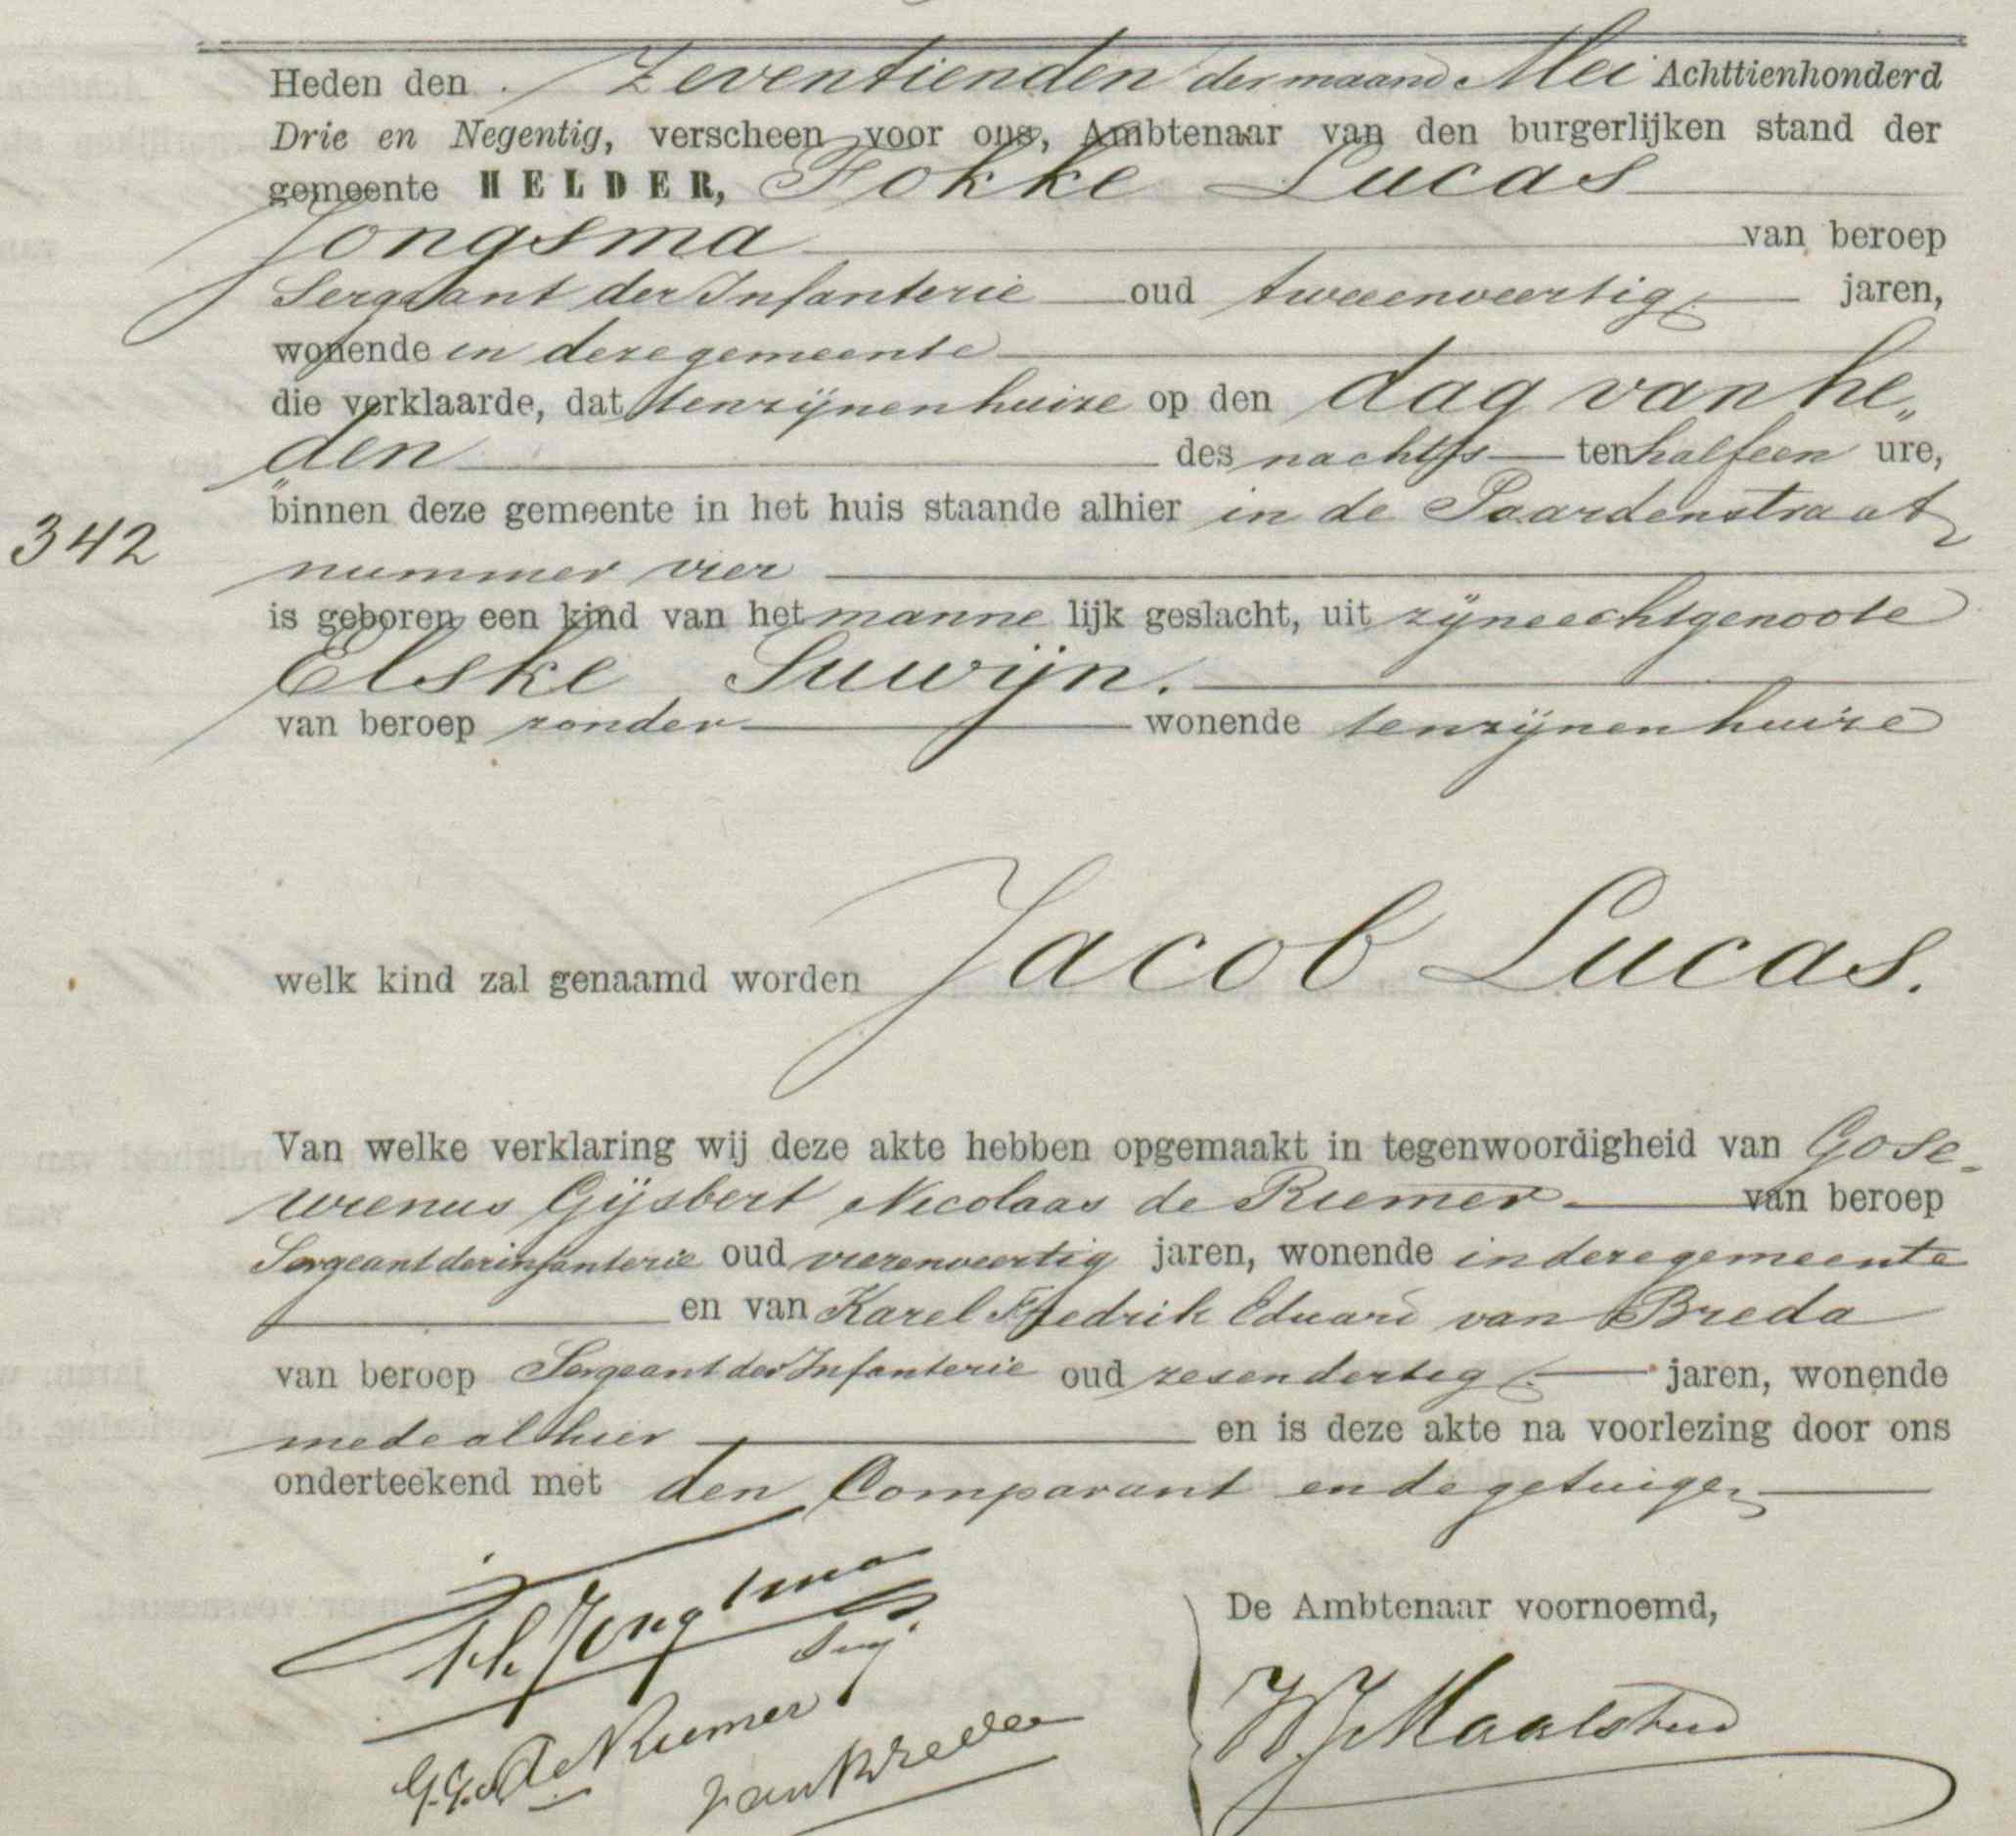 Heden den Zeventienden der maand Mei Achttienhonderd
Drie en Negentig, verscheen voor ons, Ambtenaar van den burgerlijken stand der
gemeente HELDER, Fokke Lucas
Jongsma van beroep
Sergeant der Infanterie oud tweeenveertig jaren,
wonende in deze gemeente
die verklaarde, dat tenzijnenhuize op den dag van he„
„den des nachts ten halfeen ure,
binnen deze gemeente in het huis staande alhier in de Paardenstraat
342
nummer vier
is geboren een kind van het manne lijk geslacht, uit zijne echtgenoote
Elske Suwijn.
van beroep zonder wonende tenzijnenhuize
welk kind zal genaamd worden Jacob Lucas.
Van welke verklaring wij deze akte hebben opgemaakt in tegenwoordigheid van Gose-
wienus Gijsbert Nicolaas de Riemer van beroep
Sergeant der infanterie oud vierenveertig jaren, wonende in deze gemeente
en van Karel Fredrik Eduard van Breda
van beroep Sergeant der Infanterie oud zesendertig jaren, wonende
mede alhier en is deze akte na voorlezing door ons
onderteekend met den Comparant en de getuigen
F.L. Jongsma
Serg.
De Ambtenaar voornoemd,
G.G.N. de Riemer
van Breda